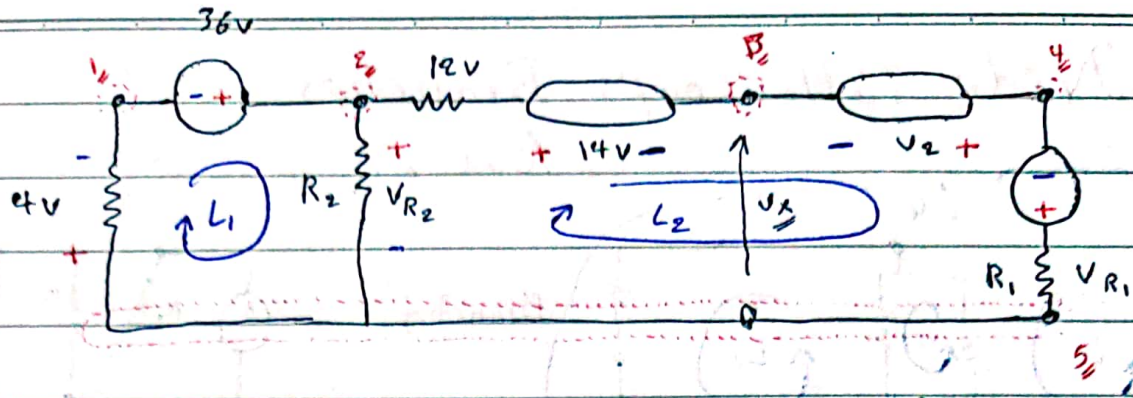 36v
1 2 12v 3 4
- +
- + + 14v - - v2 + -
4v L1 R2 VR2 L2 vx +
+ - R1 VR1
5